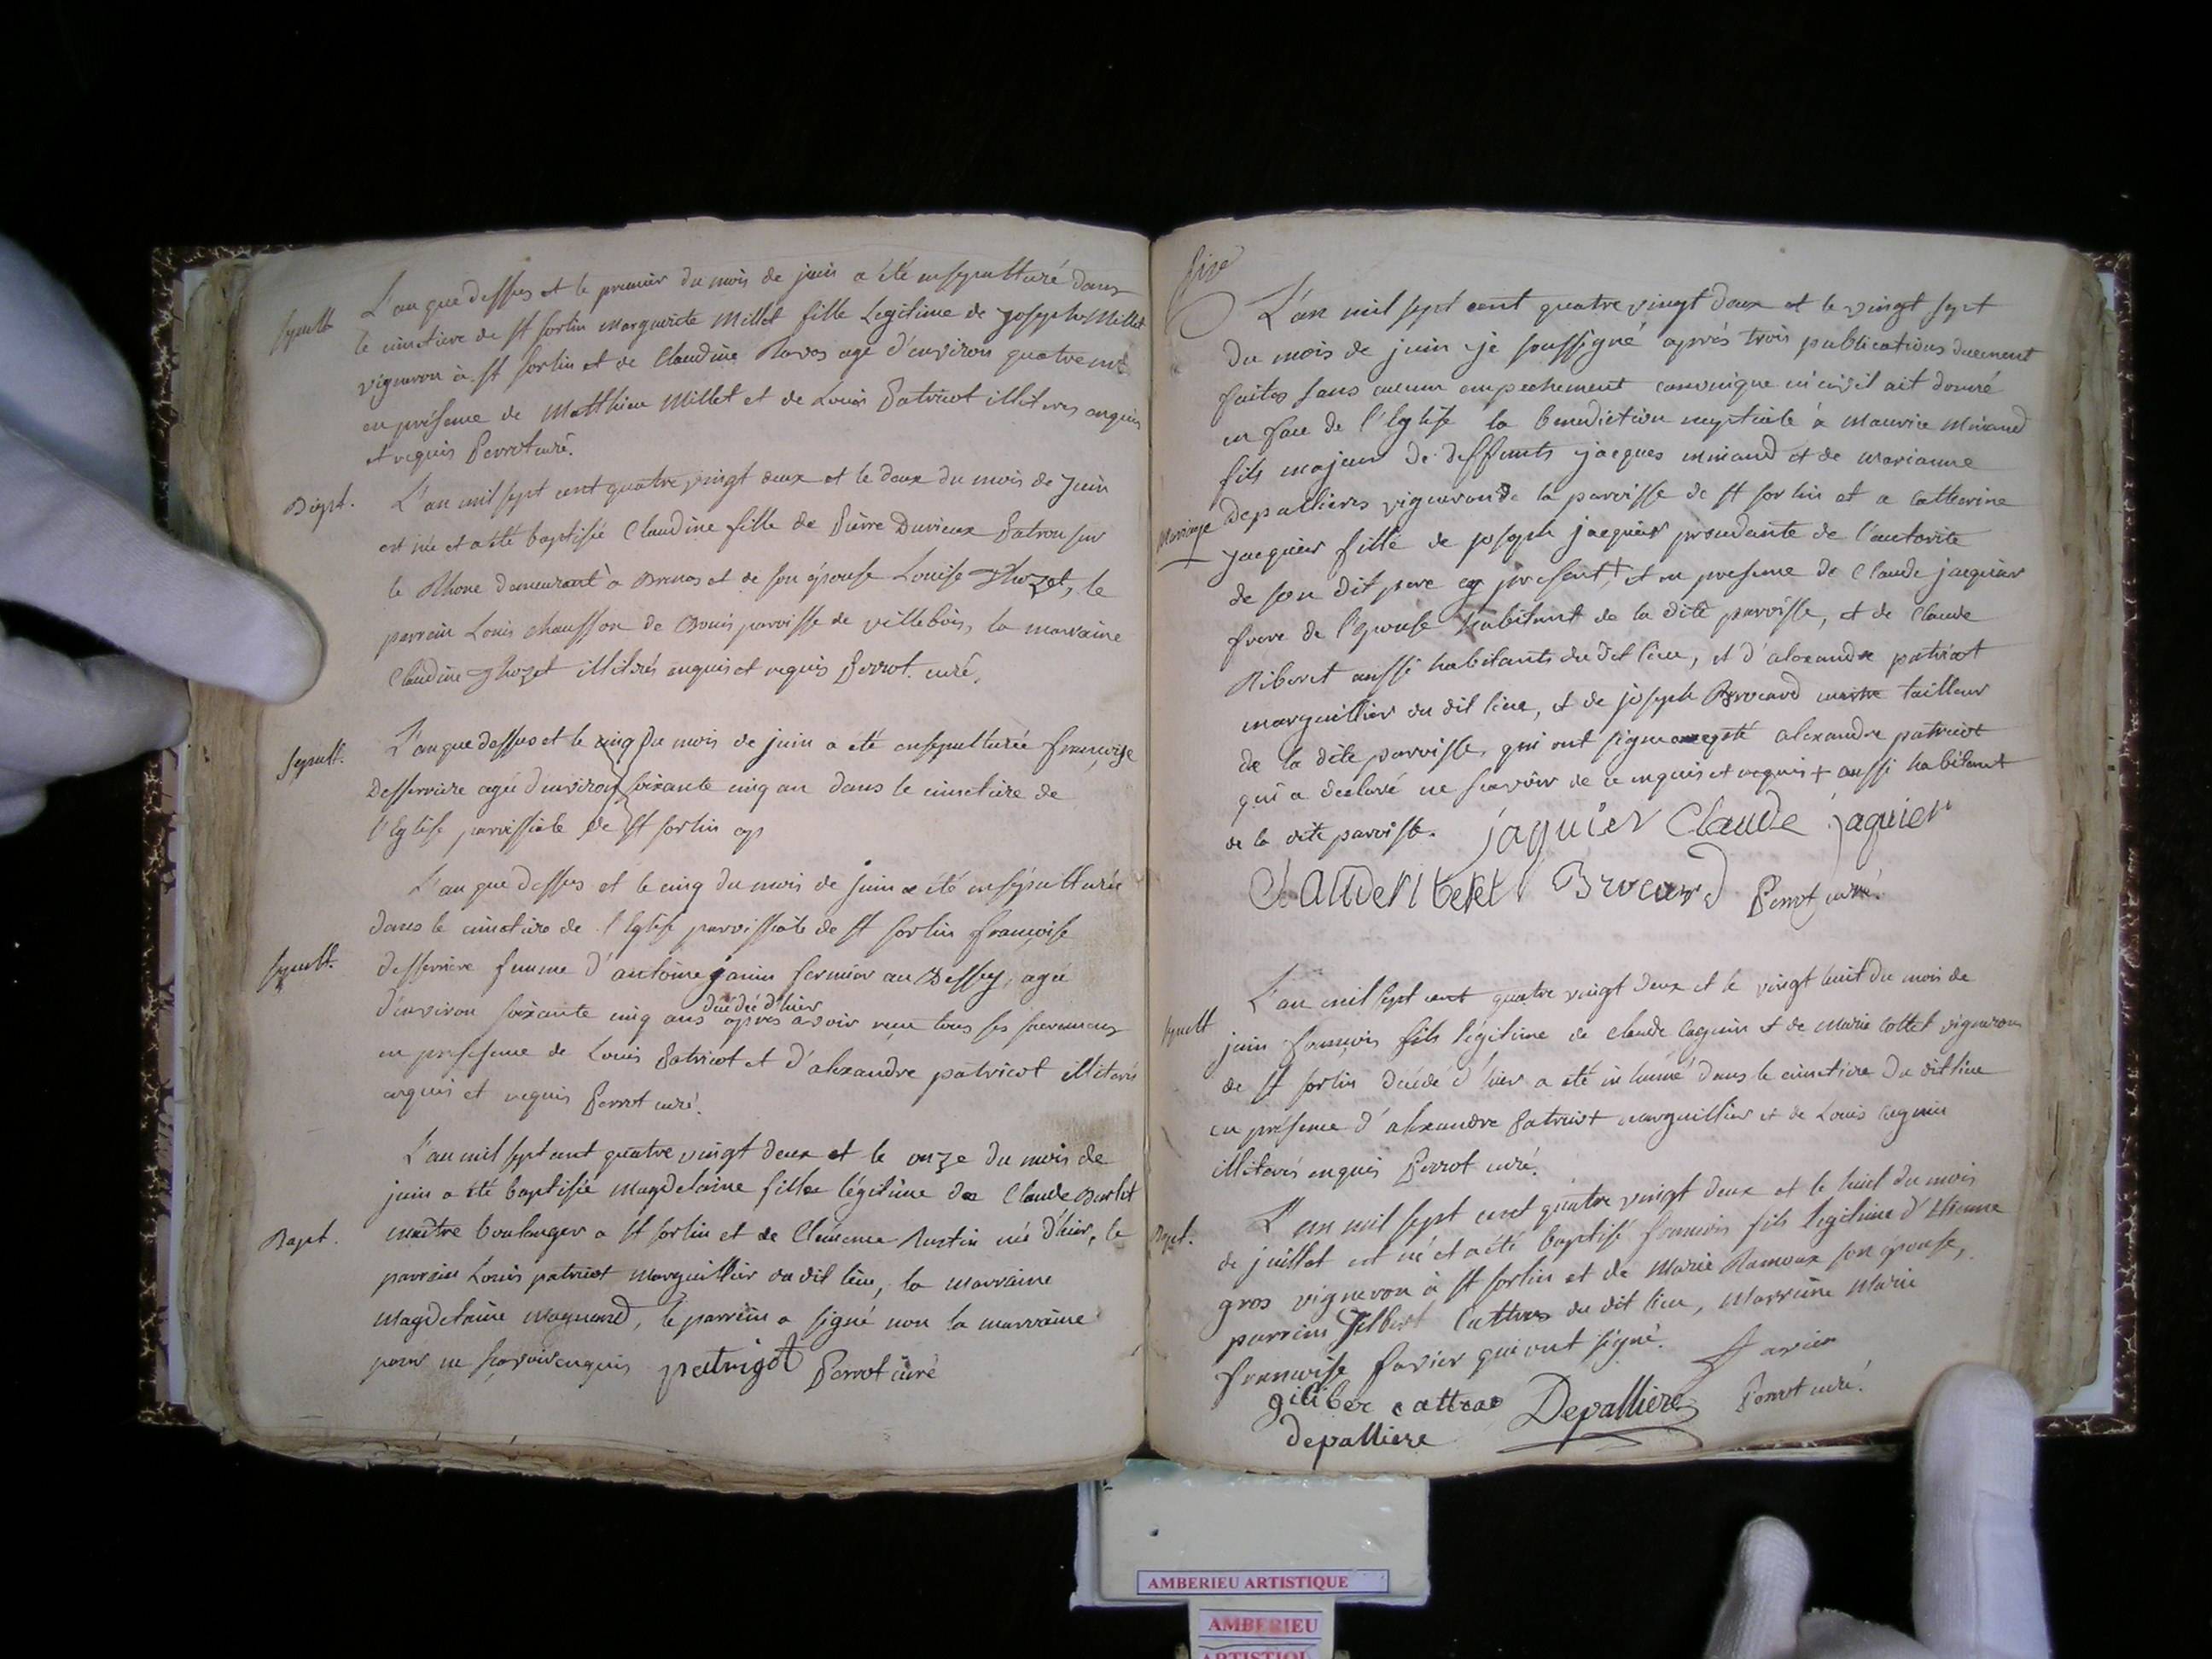 Sepult.
L'an que dessus et le premier du mois de juin a été ensepulturé dans
le cimetiere de st sorlin marguerite Millet fille Legitime de joseph Millet
vigneron à st sorlin et de Claudine Ravos age d'environ quatre
en présence de Matthieu Millet et de Louis Patricot illiteres enquis
et requis Perrot curé.
Bapt.
L'an mil sept cent quatre vingt deux et le deux du mois de juin
est née et a été baptisée Claudine fille de Pierre Duvieux Patron sur
le Rhone demeurant à et de son épouse Louise Thozet, le
parrain Louis chausson de Bouis paroisse de villebois, la marraine
Claudine Thozet illiterés enquis et requis Perrot. curé,
Sepult.
L'an que dessus et le cinq du mois de juin a été ensepulturée francoise
Desserriere agée d'environ soixante cinq an dans le cimetiere de
l'Eglise parroissiale de st sorlin
L'an que dessus et le cinq du mois de juin a été ensépulturée
dans le cimetiere de l'Eglise parroissiale de st sorlin françoise
Sepult.
desserriere femme d'antoine janin fermier au Bessey, agée
décédée d'hier
d'environ soixante cinq ans après avoir reçu tous ses sacremens
en presence de Louis Patricot et d'alexandre patricot illiterés
enquis et requis Perrot curé.
L'an mil sept cent quatre vingt deux et le onze du mois de
juin a été baptisée Magdelaine fille légitime de Claude Burlet
Bapt.
maitre boulanger a st sorlin et de Clémence Rustin née d'hier, le
parrain Louis patricot Marguillier du dit lieu, la marraine
Magdelaine Magnard, le parrain a signé non la marraine
pour ne sçavoir enquis patrigot Perrot curé
L'an mil sept cent quatre vingt deux et le vingt sept
du mois de juin je soussigné après trois publications duement
faites sans aucun empechement canonique ni civil ait donné
en face de l'Eglise la benediction nuptiale à Maurice Minand
fils majeur de deffunts jacques minand et de marianne
Mariage
depallieres vigneron de la paroisse de st sorlin et a Catherine
jacquier fille de joseph jacquier de l'autorité
de son dit pere present + et en presence de Claude jacquier
frere de l'épouse habitant de la dite paroisse, et de Claude
Riberet aussi habitants du dit lieu, et d'alexandre patricot
marguillier du dit lieu, et de joseph Brocard tailleur
de la dite parroisse, qui ont signe excepté alexandre patricot
qui a declaré ne scavoir de ce enquis et requis + aussi habitant
de la dite paroisse. jaquier Claude jaquier
Claude riberet Brocard Perrot curé.
L'an mil sept cent quatre vingt deux et le vingt huit du mois de
Sepult
juin françois fils légitime de Claude Caguin et de Marie Cottet vigneron
de st sorlin décédé d'hier a été inhumé dans le cimetiere du dit lieu
en présence d'alexandre Patricot marguillier et de Louis
illiterés enquis Perrot curé.
L'an mil sept cent quatre vingt deux et le huit du mois
Bapt.
de juillet est né et a été baptisé francois fils legitime d'Etienne
gros vigneron à st sorlin et de Marie Ramoux son épouse,
parrain Gilbert Cattras du dit lieu, Marraine Marie
francoise favier qui ont signé. favier
giliber cattras Depalliere Perrot curé.
depalliere
AMBERIEU ARTISTIQUE
AMBERIEU